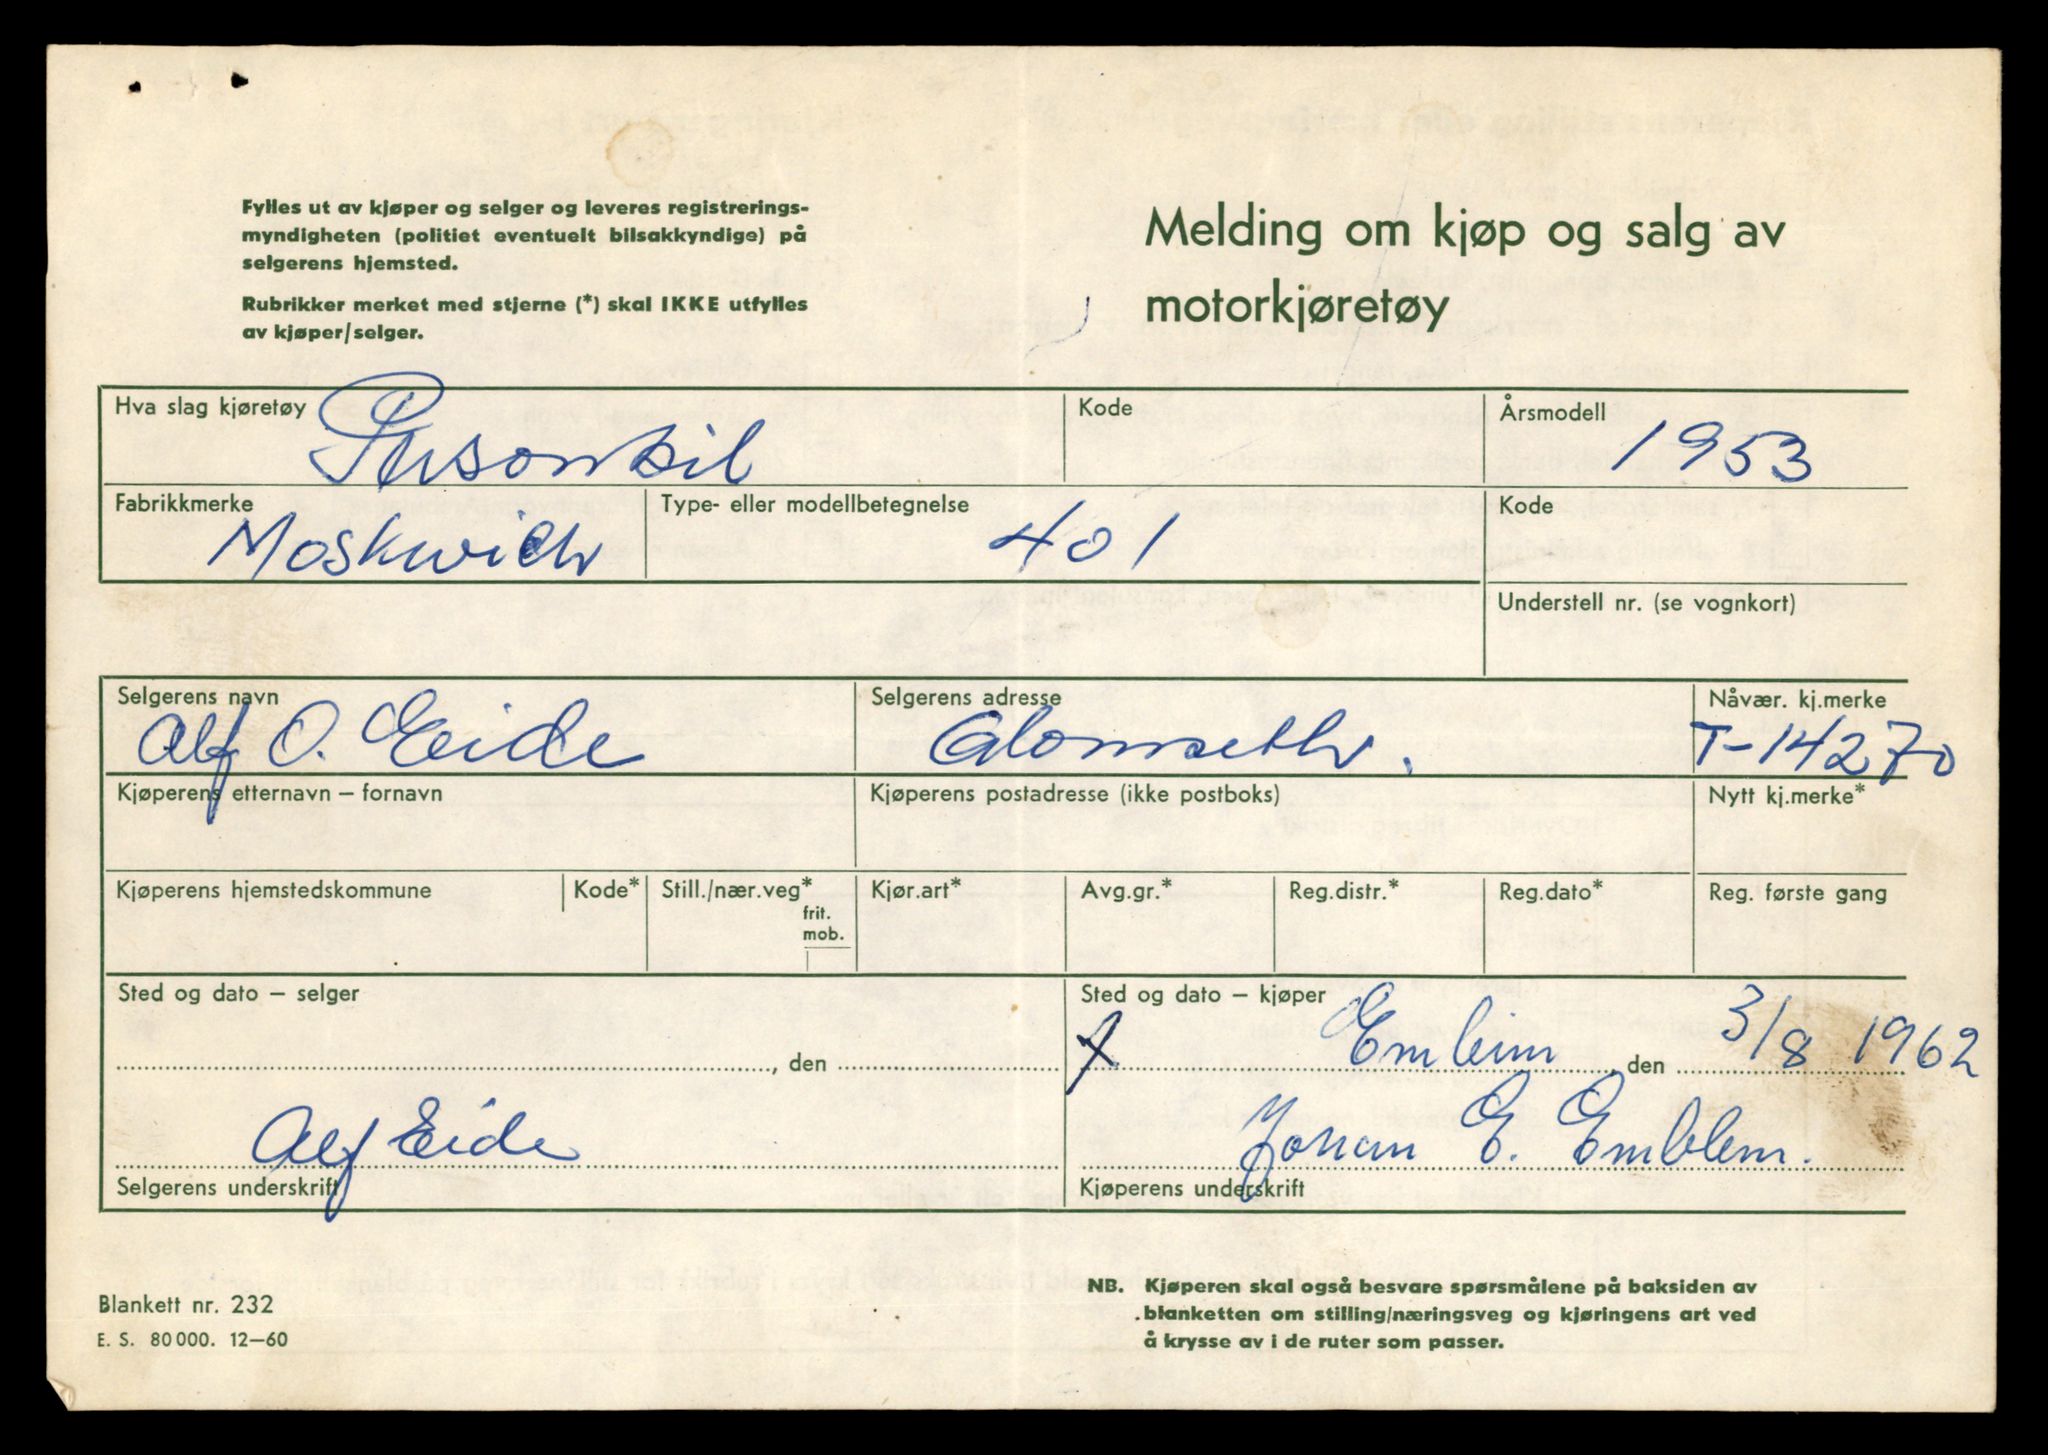 Fylles ut av kjøper og selger og leveres registrerings-
myndigheten (politiet eventuelt bilsakkyndige) på
selgerens hjemsted.
Rubrikker merket med stjerne (*) skal IKKE utfylles
av kjøper/selger.
Melding om kjøp og salg av
motorkjøretøy
Hva slag kjøretøy
Personbil
Kode
Årsmodell
1953
Fabrikkmerke
Moskwich
Type- eller modellbetegnelse
401
Kode
Understell nr. (se vognkort)
Selgerens navn
Alf O. Eide
Selgerens adresse
Nåvær. kj.merke
T-14270
Kjøperens etternavn – fornavn
Kjøperens postadresse (ikke postboks)
Nytt kj.merke*
Kjøperens hjemstedskommune
Kode*
Still./nær.veg*
frit.
mob.
Kjør.art*
Avg.gr.*
Reg.distr.*
Reg.dato*
Reg. første gang
Sted og dato – selger
, den
Sted og dato – kjøper
x Emleim, den 3/8 1962
Alf Eide
Selgerens underskrift
Johan E. Emblem.
Kjøperens underskrift
Blankett nr. 232
E. S. 80 000. 12–60
NB. Kjøperen skal også besvare spørsmålene på baksiden av
blanketten om stilling/næringsveg og kjøringens art ved
å krysse av i de ruter som passer.